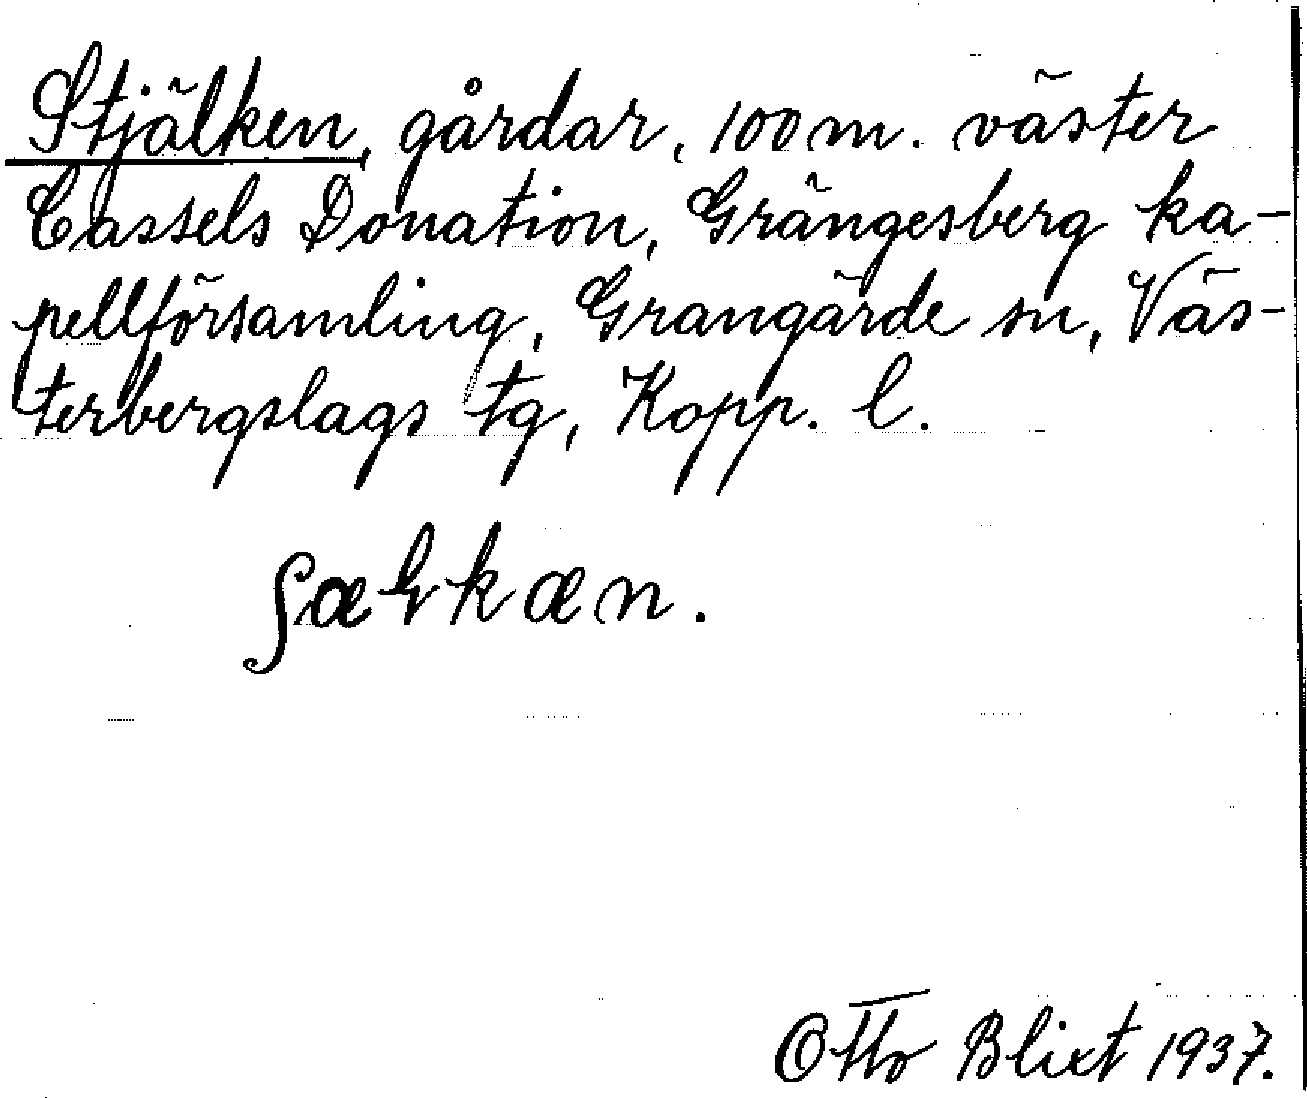 Stjälken, gårdar, 100 m. väster
Cassels Donation, Grängesberg ka-
pellförsamling, Grangärde sn, Väs-
terbergslags tg, Kopp. l.
ʃæɫkæn.
Otto Blixt 1937.